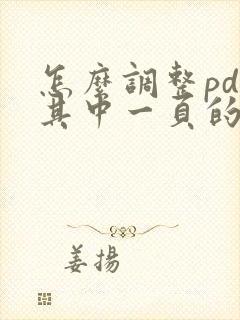 怎麼調整pd
其中一頁的
姜揚